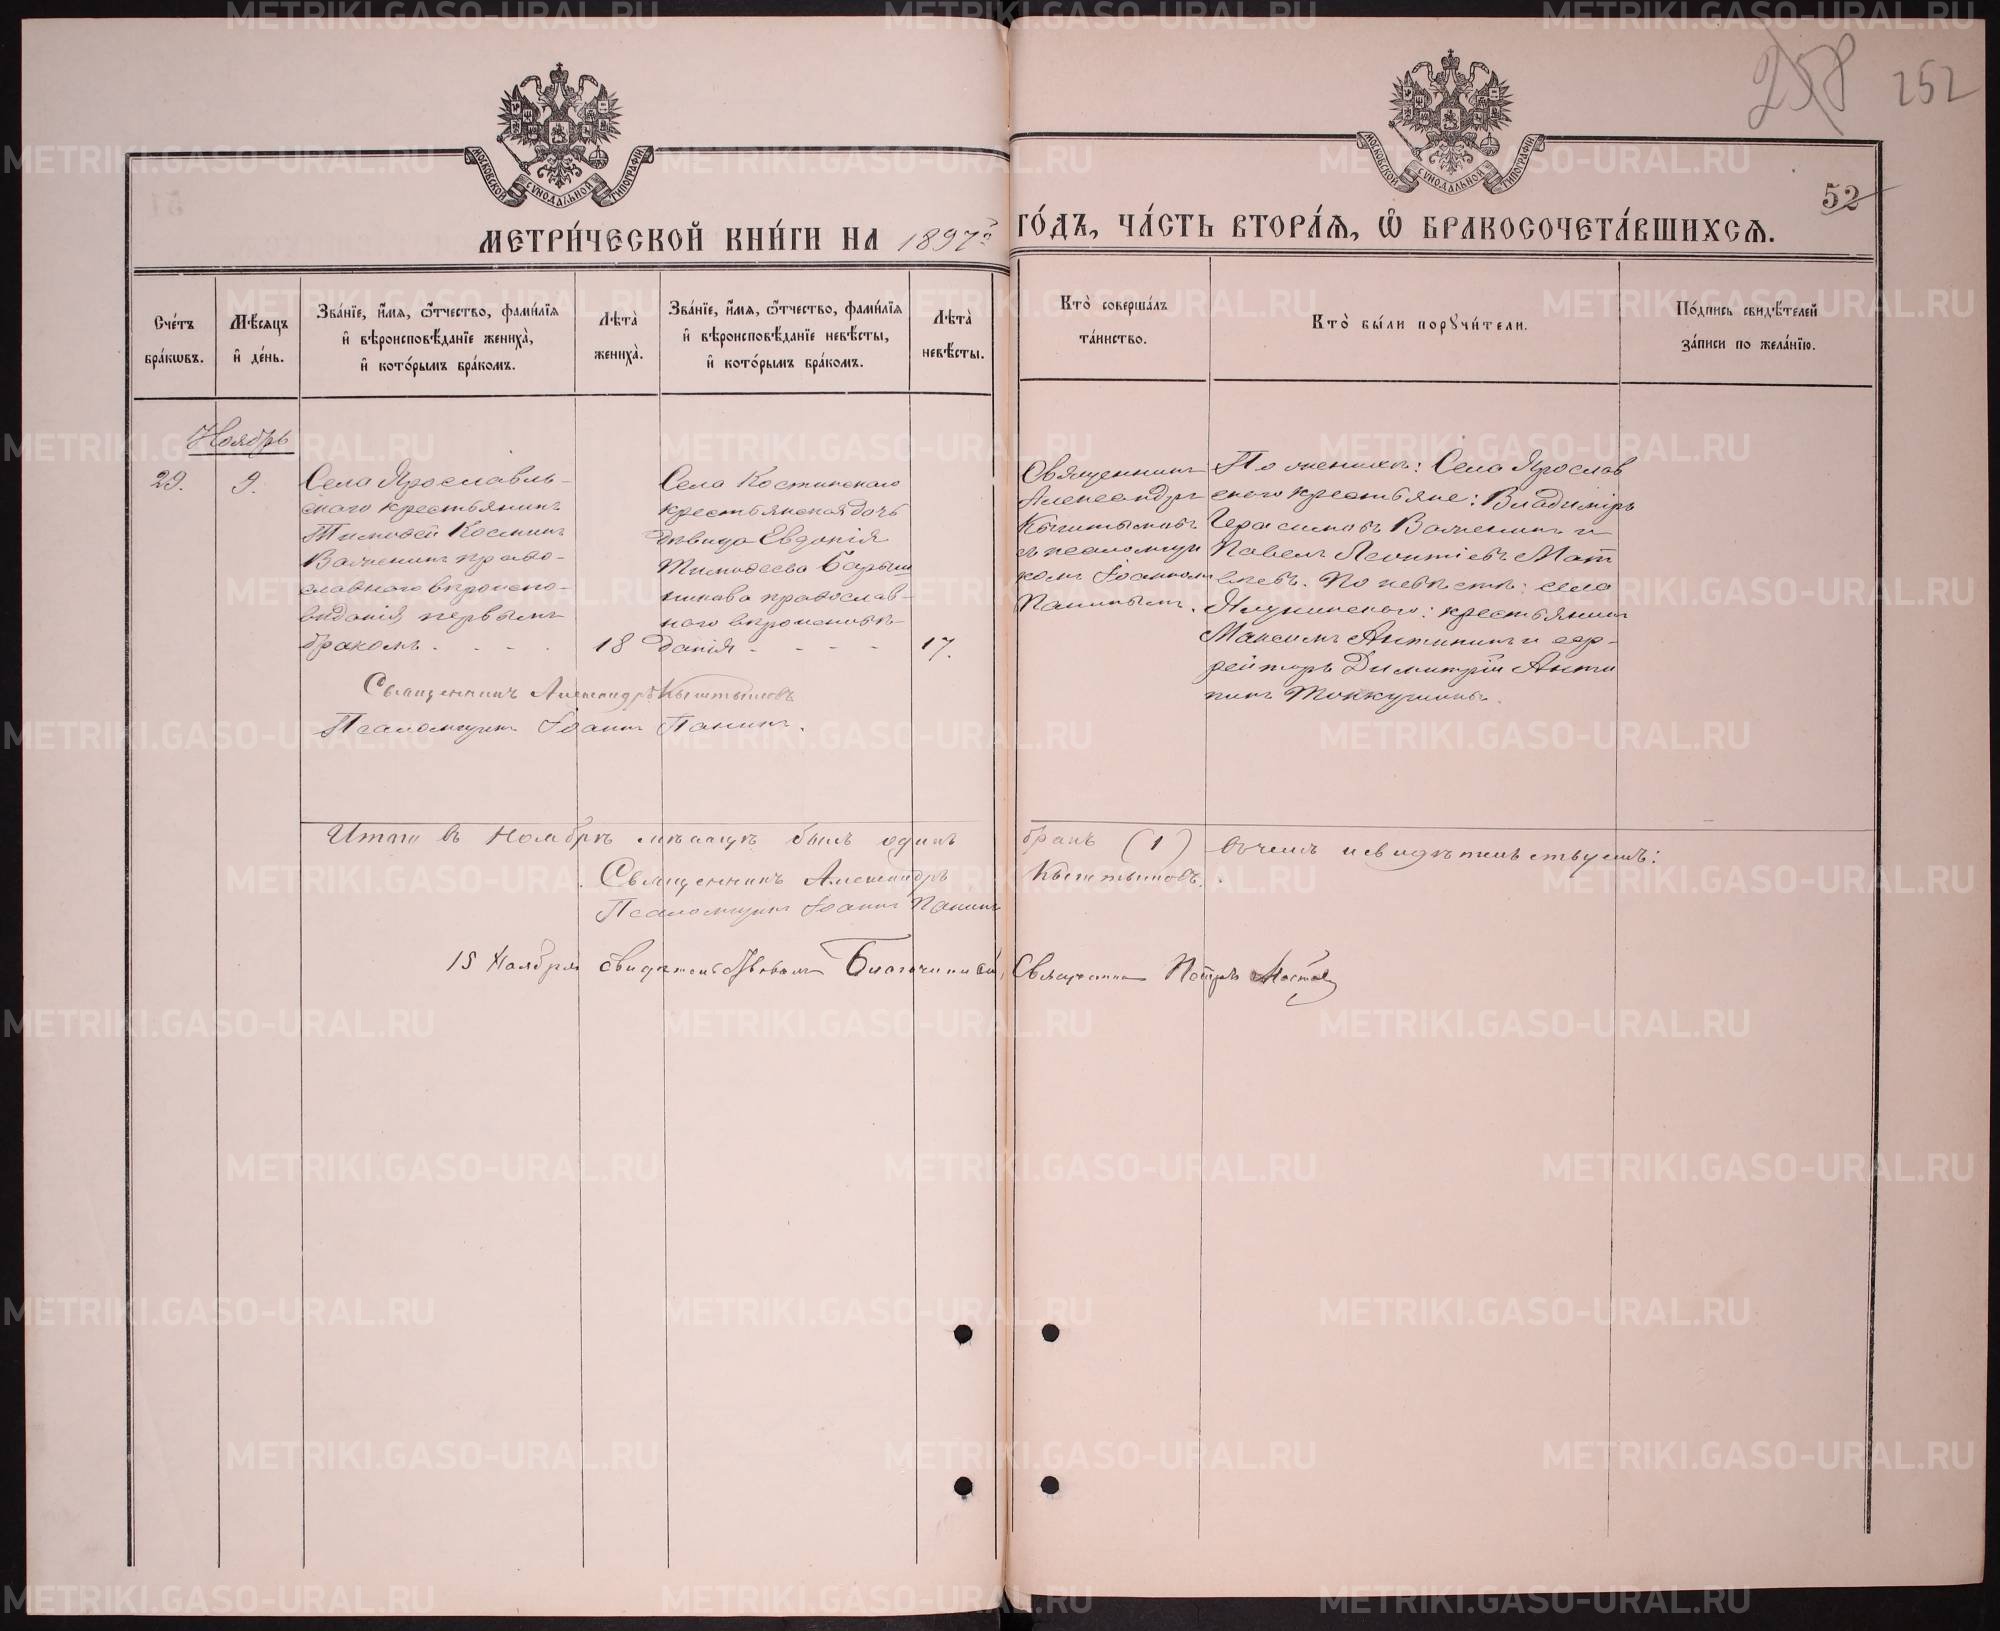 258 252
МОСКОВСКОЙ СУНОДАЛЬНОЙ ТИПОГРАФІИ
МОСКОВСКОЙ СУНОДАЛЬНОЙ ТИПОГРАФІИ
52
МЕТРИ́ЧЕСКОЙ КНИ́ГИ НА 1897й ГО́ДЪ, ЧА́СТЬ ВТОРА́Ѧ, Ѽ БРАКОСОЧЕТА́ВШИХСѦ.
Сче́тъ бра́кѡвъ.
Мѣ́сяцъ и де́нь.
Зва́нїе, и́мѧ, ѻ́тчество, фами́лїѧ и вѣроисповѣ́данїе жениха̀, и кото́рымъ бра́комъ.
Лѣ́та жениха̀.
Зва́нїе, и́мѧ, ѻ́тчество, фами́лїѧ и вѣроисповѣ́данїе невѣ́сты, и кото́рымъ бра́комъ.
Лѣ́та невѣ́сты.
Кто̀ соверша́лъ та́инство.
Кто̀ бы́ли порꙋчи́тели.
По́дпись свидѣ́телей за́писи по жела́нїю.
Ноябрь
29.
9.
Села Ярославль-
скаго крестьянинъ
Тимофей Косминъ
право-
славнаго вѣроиспо-
вѣданія первымъ
бракомъ. - - -
18
Села Костинскаго
крестьянская дочь
дѣвица Евдокія
Тимофеева Барыш
никова православ-
наго вѣроисповѣ-
данія - - - -
17.
Священникъ
Александръ
Кыштымовъ
съ псаломщи
комъ Іоанномъ
Панинымъ.
По женихѣ: Села Ярослав
скаго крестьяне: Владиміръ
Герасимовъ и
Павелъ Леонтіевъ Мат
вѣевъ. По невѣстѣ: села
крестьянинъ
Максимъ Антипинъ и еф-
рейторъ Димитрій Анти
пинъ
Священникъ Александръ Кыштымовъ
Псаломщикъ Іоаннъ Панинъ.
Итого въ Ноябрѣ мѣсяцѣ былъ одинъ бракъ (1) въ чемъ и свидѣтельствуемъ:
Священникъ Александръ Кыштымовъ.
Псаломщикъ Іоаннъ Панинъ
15 Ноября свидѣтельствовалъ Благочинный, Священникъ Петръ
METRIKI.GASO-URAL.RU